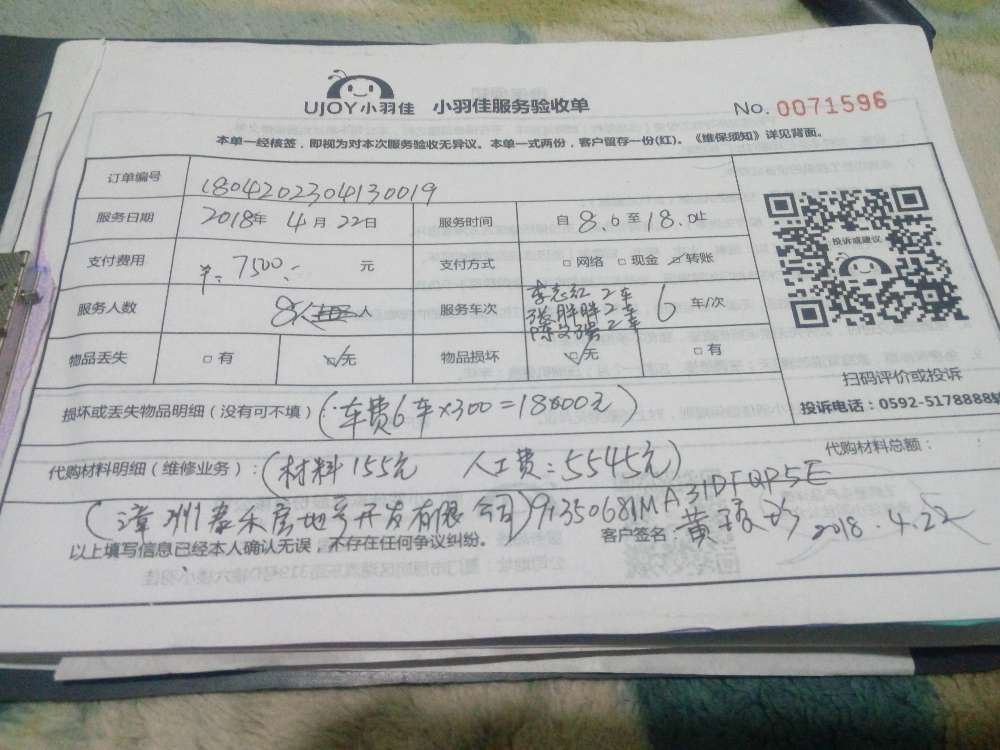 UJOY小羽佳 小羽佳服务验收单 No. 0071596
本单一经核签，即视为对本次服务验收无异议。本单一式两份，客户留存一份(红)。《维保须知》详见背面。
订单编号 1804202304130019
服务日期 2018年 4月 22日 服务时间 自 8.0 至 18.0止
支付费用 ¥: 7500.- 元 支付方式 □ 网络 □ 现金 ☑ 转账
服务人数 8人 人 服务车次 李志红 2车
张胖胖 2车
陈文强 2车 6 车/次
物品丢失 □ 有 ☑ 无 物品损坏 ☑ 无 □ 有
投诉或建议
扫码评价或投诉
投诉电话：0592-5178888转
损坏或丢失物品明细（没有可不填）(车费6车×300=1800元)
代购材料明细（维修业务）：(材料155元 人工费：5545元) 代购材料总额：
(漳州泰禾房地产开发有限公司) 91350681MA31DFQP5E
以上填写信息已经本人确认无误，不存在任何争议纠纷。 客户签名：黄 2018.4.22